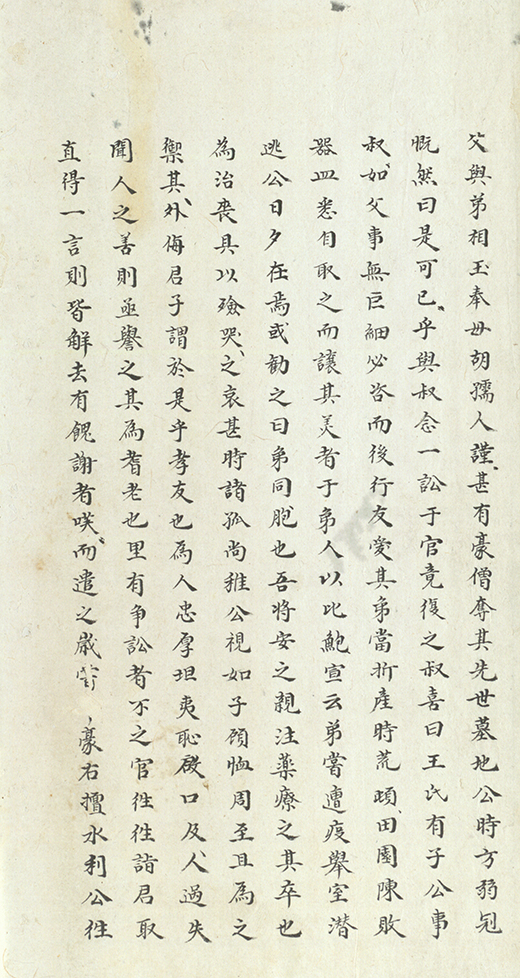 父與弟相玉奉母胡孺人謹甚有豪僧奪其先世墓地公時方弱冠
慨然曰是可已乎與叔念一訟于官竟復之叔喜曰王氏有子公事
叔如父事無巨細必咨而後行友愛其弟當析產時荒頓田園陳敗
器皿悉自取之而讓其美者于弟人以比鮑宣云弟嘗遭疫舉室潛
逃公日夕在焉或勸之曰弟同胞也吾將安之親注藥療之其卒也
為治喪具以殮哭之哀甚時諸孤尚稚公視如子頋恤周至且為之
禦其外侮君子謂於是乎孝友也為人忠厚坦夷恥啟口及人過失
聞人之善則亟譽之其為耆老也里有争訟者不之官徃徃詣君取
直得一言則皆解去有餽謝者咲而遣之歲豪右擅水利公徃